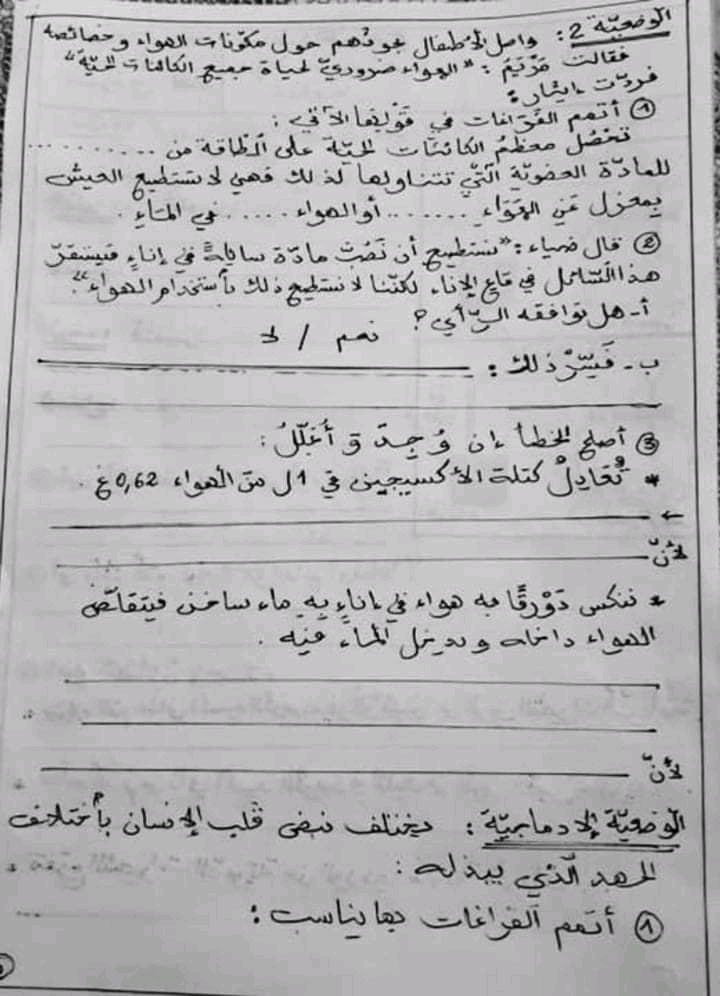 الوضعيّة 2: واصل الأطفال بحوثهم حول مكوّنات الهواء وخصائصه
فقالت مَرْيَمُ: "الهواء ضروريّ لحياة جميع الكائنات الحيّة"
فردّت إيثار:
① أتمم الفَرَاغات في قَوْلِهَا الآتي:
تَحْصُلُ معظمُ الكائنَات الحيّة على الطّاقة من ..........
للمادّة العضويّة الّتي تتناولها لذلك فهي لا تستطيع العيش
بمعزل عَنِ الهَوَاءِ ....... أو الهواء ...... في المَاءِ.
② قال ضياء: "نستطيع أن نَصُبَّ مادّة سائلةً في إناءٍ فيستقرّ
هذا السّائل في قاع الإناء لكنّنا لا نستطيع ذلك باستخدام الهواء".
أ- هل توافقه الرّأي؟ نعم / لا
ب- فَسِّرْ ذلك:
③ أصلح الخطأ إن وُجِدَ وَ أُعَلِّلُ:
* تُعَادِلُ كتلة الأكسيجين في 1ل من الهواء 0,62غ.
←
لأنّ
* ننكس دَوْرَقًا به هواء في إناءٍ بِهِ ماء ساخن فيتقلّص
الهواء داخله ويدخل الماءُ فيه.
لأنّ
الوضعيّة الإدماجيّة: يختلف نبض قلب الإنسان باختلاف
الجهد الّذي يبذله:
① أتمم الفراغات بما يناسب: